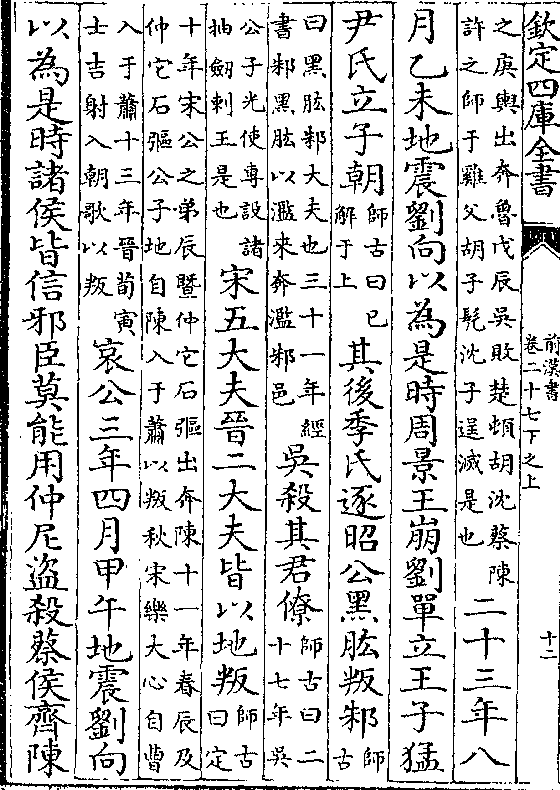 欽定四庫全書
前漢書
卷二十七下之上
十二
之庚輿出奔魯戊辰吳敗楚頓胡沈蔡陳
許之師于雞父胡子髡沈子逞滅是也
二十三年八
月乙未地震劉向以為是時周景王崩劉單立王子猛
尹氏立子朝
師古曰已
解于上
其後季氏逐昭公黑肱叛邾
師
古
曰黑肱邾大夫也三十一年經
書邾黑肱以濫來奔濫邾邑
吳殺其君僚
師古曰二
十七年吳
公子光使專設諸
抽劔刺王是也
宋五大夫晉二大夫皆以地叛
師古
曰定
十年宋公之弟辰暨仲它石彄出奔陳十一年春辰及
仲它石彄公子地自陳入于蕭以叛秋宋樂大心自曹
入于蕭十三年晉荀寅
士吉射入朝歌以叛
哀公三年四月甲午地震劉向
以為是時諸侯皆信邪臣莫能用仲尼盜殺蔡侯齊陳